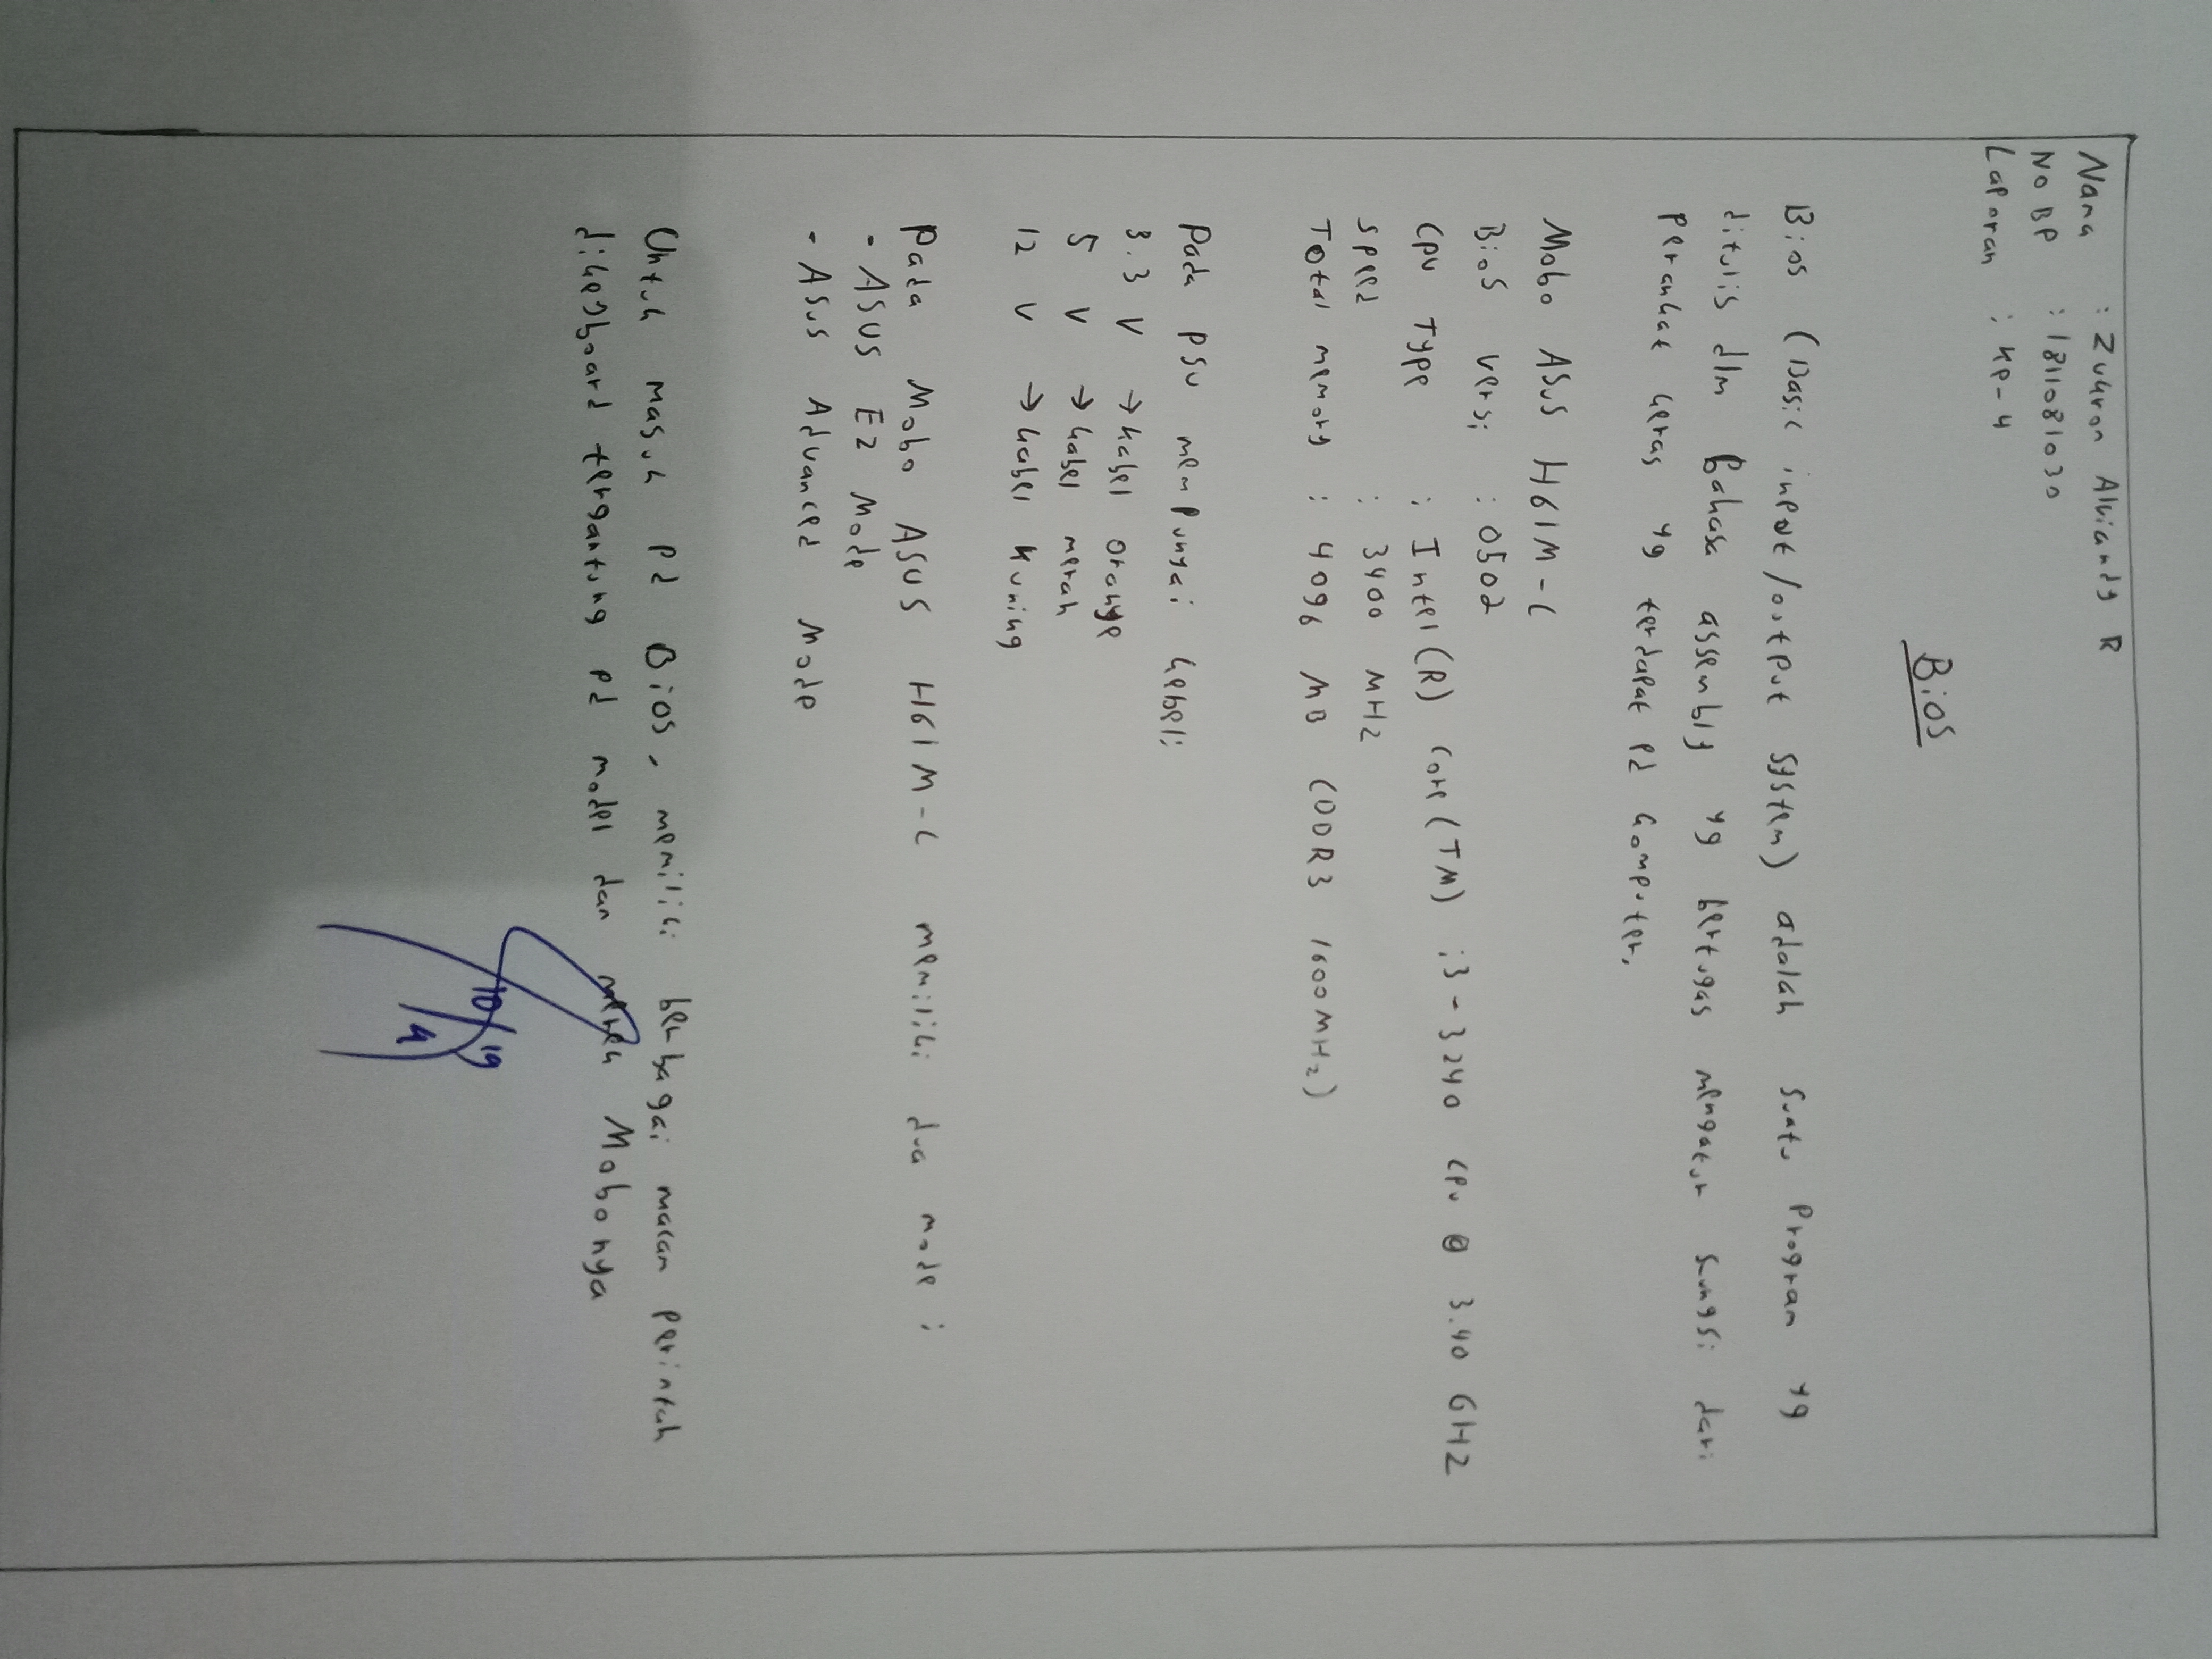 Nama : Zukron Alviandy R
No BP : 1811081030
Laporan : KP-4
BiOS
Bios (Basic input/output system) adalah suatu Program yg
ditulis dlm Bahasa assembly yg bertugas mengatur fungsi dari
perangkat keras yg terdapat pd komputer.
Mobo ASUS H61M-C
BioS versi : 0502
CPU Type : Intel(R) Core(TM) i3-3240 CPU @ 3.40 GHZ
Speed : 3400 MHZ
Total memory : 4096 MB (DDR3 1600MHz)
Pada PSU mempunyai kebel:
3.3 V → kabel orange
5 V → kabel merah
12 V → kabel Kuning
Pada Mobo ASUS H61M-C memiliki dua mode :
- ASUS EZ Mode
- Asus Advanced Mode
Untuk masuk Pd BiOS, memiliki berbagai macam perintah
dikeyboard tergantung pd model dan merek Mobonya
10/4 19